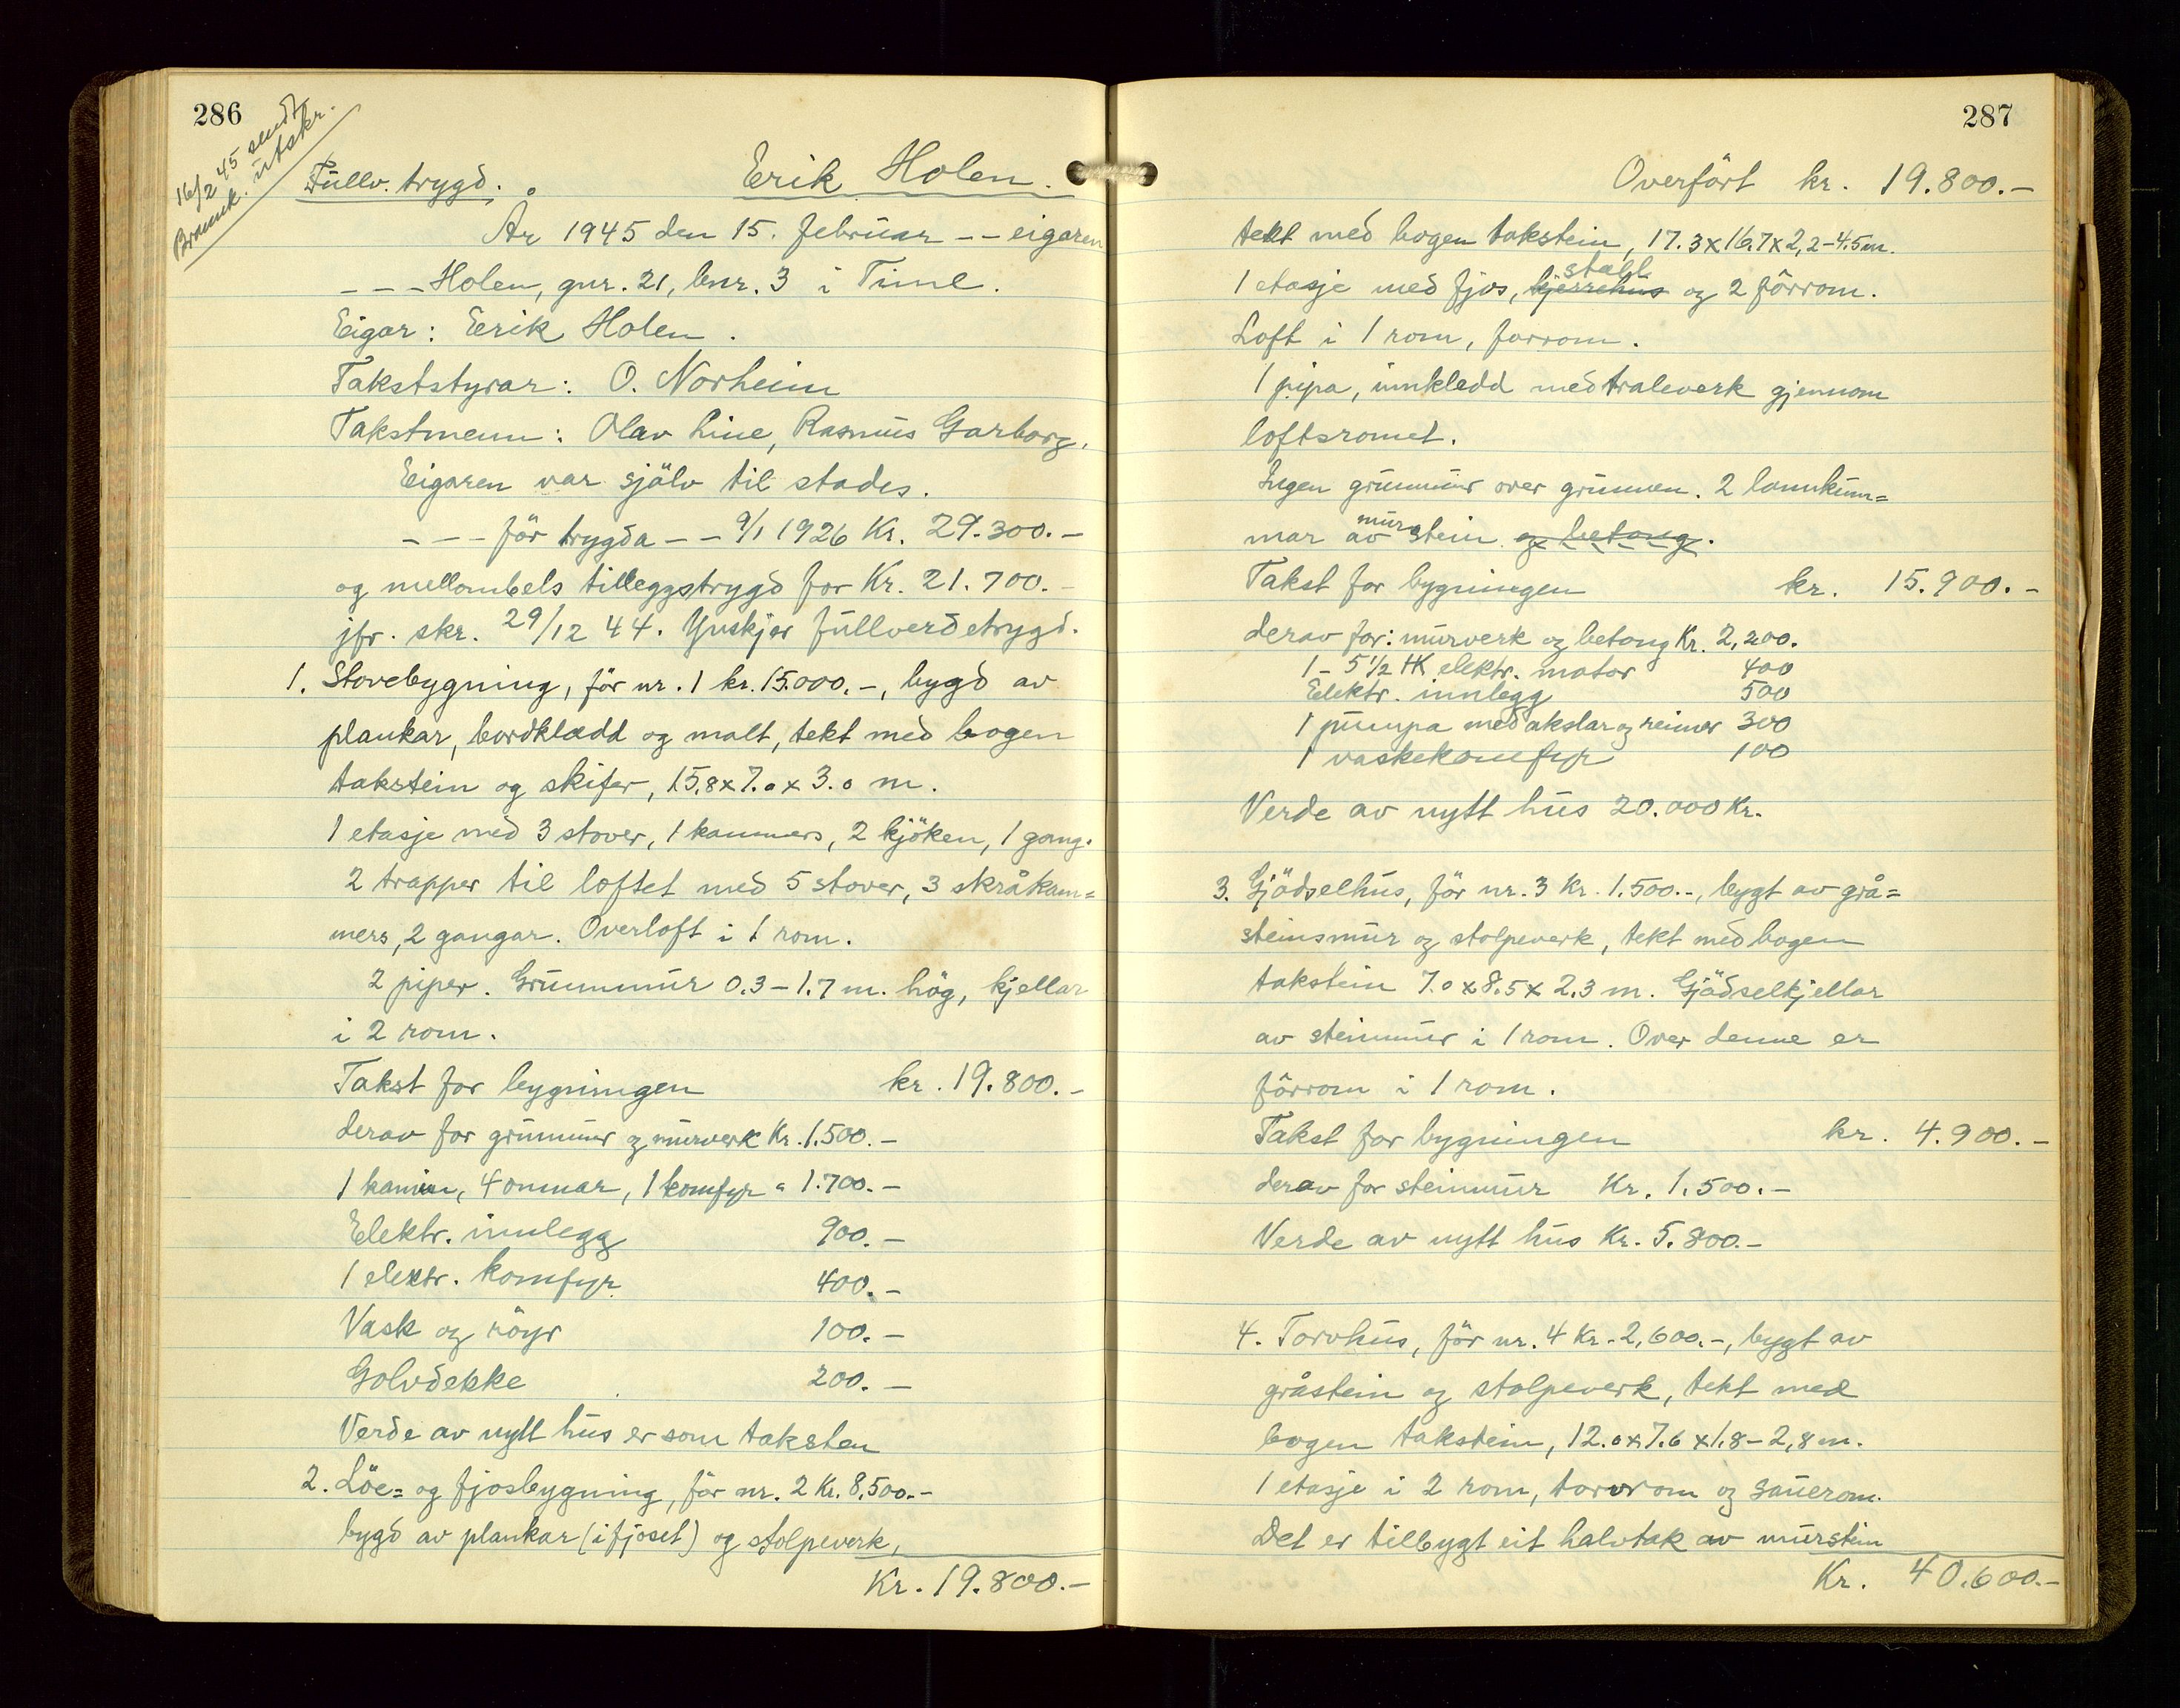 286
16/2 45 sendt
Brannk. utskr.
Fullv. trygd.
Erik Holen.
År 1945 den 15. februar -- eigaren
--- Holen, gnr. 21, bnr. 3 i Time.
Eigar: Erik Holen.
Takststyrar: O. Norheim
Takstmenn: Olav Line, Rasmus Garborg.
Eigaren var själv til stades.
--- för trygda -- 9/1 1926 Kr. 29.300.-
og mellombels tilleggstrygd for Kr. 21.700.-
jfr. skr. 29/12 44. Ynskjer fullverdetrygd.
1. Stovebygning, för nr. 1 kr. 15.000.-, bygd av
plankar, bordklædd og malt, tekt med bogen
takstein og skifer, 15,8 x 7.0 x 3.0 m.
1 etasje med 3 stover, 1 kammers, 2 kjöken, 1 gang.
2 trapper til loftet med 5 stover, 3 skråkam=
mers, 2 gangar. Overloft i 1 rom.
2 piper. Grunnmur 0.3-1.7 m. hög, kjellar
i 2 rom.
Takst for bygningen kr. 19.800.-
derav for grunnmur og murverk Kr. 1.500.-
1 kamin, 4 omnar, 1 komfyr " 1.700.-
Elektr. innlegg 900.-
1 elektr. komfyr 400.-
Vask og röyr 100.-
Golvdekke 200.-
Verde av nytt hus er som taksten
2. Löe= og fjosbygning, för nr. 2 Kr. 8.500.-
bygd av plankar (i fjoset) og stolpeverk,
Kr. 19.800.-
287
Overfört kr. 19.800.-
tekt med bogen takstein, 17.3 x 16.7 x 2,2-4.5 m.
stall
1 etasje med fjos, kjerrehus og 2 fôrrom.
Loft i 1 rom, forrom.
1 pipa, innkledd med traleverk gjennom
loftsromet.
Ingen grunnmur over grunnen. 2 lannkum=
mur
mar av stein og betong.
Takst for bygningen kr. 15.900.-
derav for: murverk og betong Kr. 2,200.
1- 5 1/2 HK elektr. motor 400
Elektr. innlegg 500
1 pumpa med akslar og reimer 300
1 vaskekomfyr 100
Verde av nytt hus 20.000 Kr.
3. Gjödselhus, för nr. 3 Kr. 1.500.-, bygt av grå=
steinsmur og stolpeverk, tekt med bogen
takstein 7.0 x 8.5 x 2.3 m. Gjödselkjellar
av steinmur i 1 rom. Over denne er
fôrrom i 1 rom.
Takst for bygningen kr. 4.900.-
derav for steinmur Kr. 1.500.-
Verde av nytt hus Kr. 5.800.-
4. Torvhus, för nr. 4 Kr. 2,600.-, bygt av
gråstein og stolpeverk, tekt med
bogen takstein, 12.0 x 7.6 x 1.8-2,8 m.
1 etasje i 2 rom, torvrom og sauerom.
Det er tilbygt eit halvtak av murstein
Kr. 40.600.-